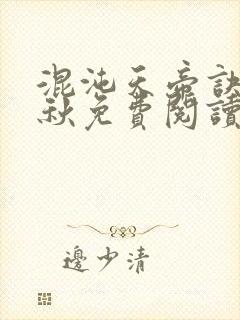 混沌天帝訣
秋免費閱讀
邊少清